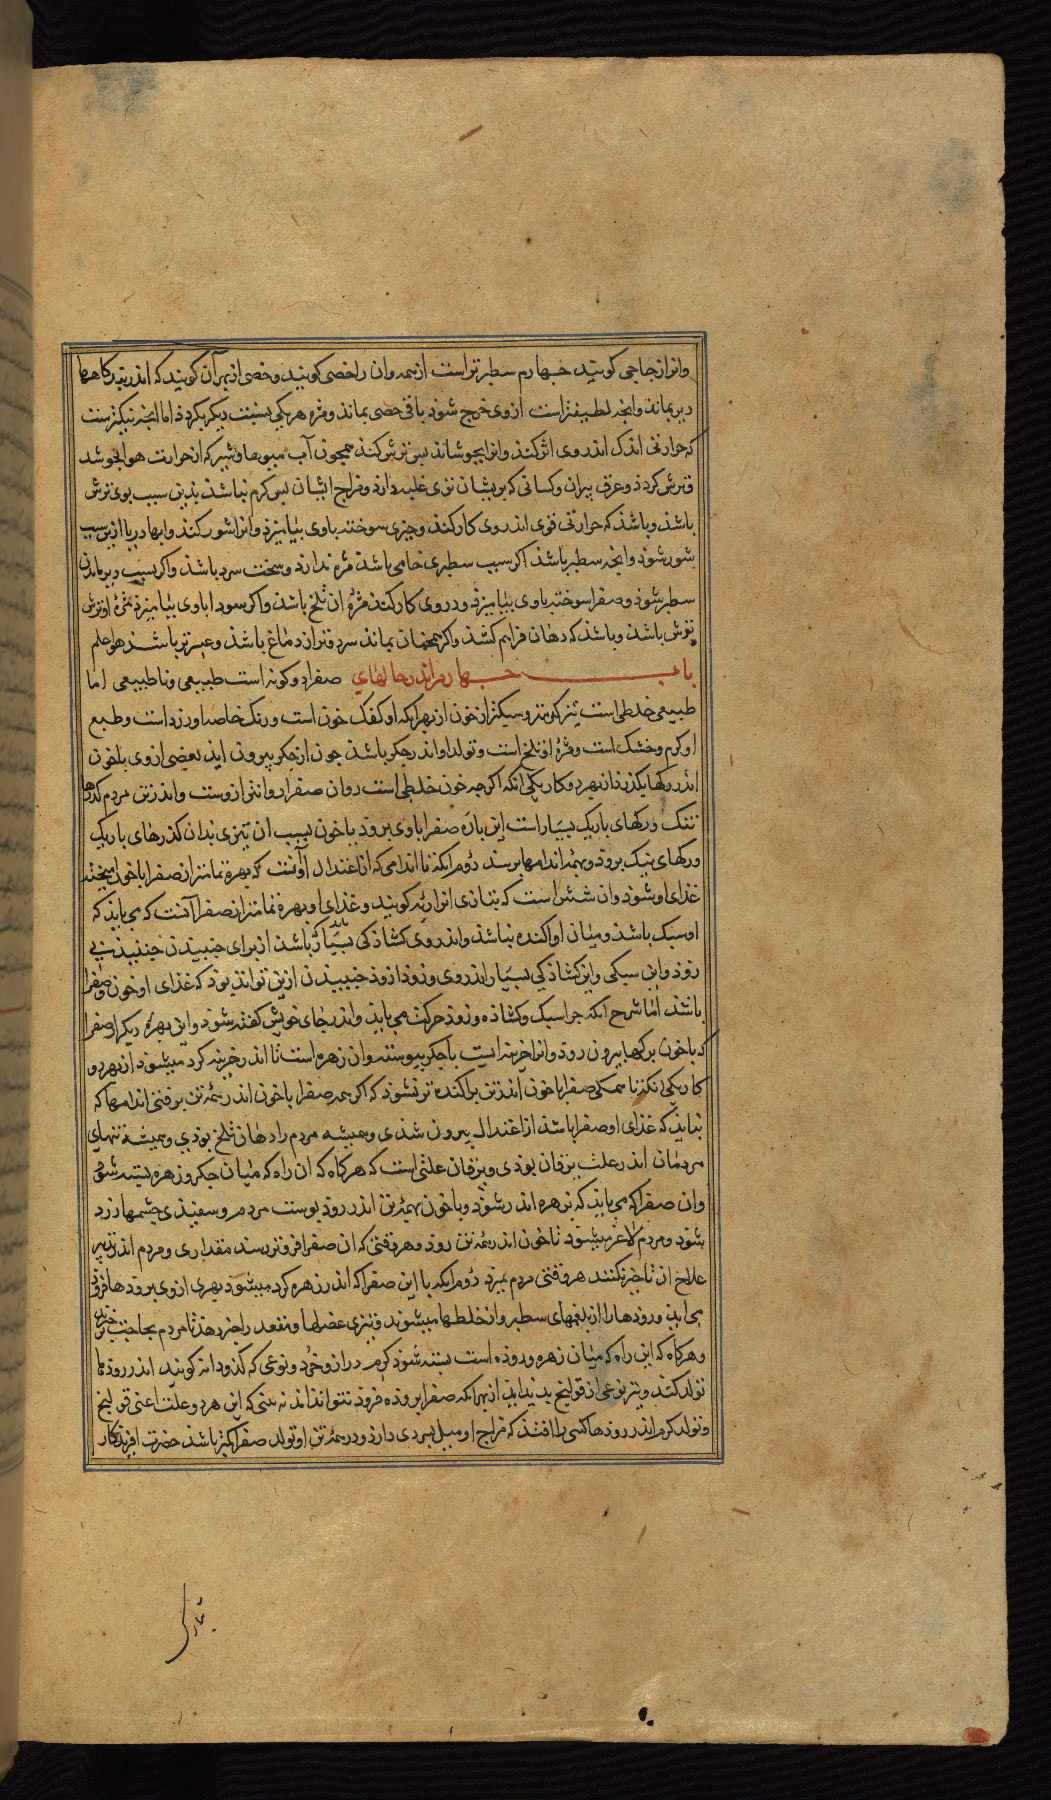 وانرا زجاجی کویند جهارم سطبرتر است از همه وان را خصی کویند وخصی از بهر آن کویند که اندر بندکاهها
دیر بماند وانجه لطیفتر است ازوی خرج شود باقی خصی بماند ومزه هر یکی بنسبت دیکر بکردد اما انجه تنکتر ست
که حرارتی اندک اندر وی اثر کند وانرا بجوشاند بس ترش کند همجون آب میوها وشیر که از حرارت هوا بجوشد
وترش کردد وعرق پیران وکسانی که بریشان تری غلبه دارد ومزاج ایشان بس کرم نباشد بدین سبب بوی ترش
باشد وباشد که حرارتی قوی اندر وی کار کند وجیزی سوخته باوی بیامیزد وانرا شور کند وابها دریا ازین سبب
شور شود وانجه سطبر باشد اکر سبب سطبری خامی باشد مزه ندارد وسخت سرد باشد واکر بسبب دیر ماندن
سطبر شود وصفرا سوخته باوی بیامیزد ودر وی کار کند مزۀ ان تلخ باشد واکر سودا باوی بیامیزد مزۀ او ترش
ترش باشد وباشد که دهان فراهم کشد واکر همجنان بماند سردتر از دماغ باشد وعسرتر باشد هو اعلم
باب جهارم اندر حالهای صفرا دو کونه است طبیعی وناطبیعی اما
طبیعی خلطی است تیز کرمتر وسبکتر از خون از بهر انکه او کفک خون است ورنک خاصه او زرد است وطبع
او کرم وخشک است ومزۀ او تلخ است وتولد او اندر جکر باشد جون از جکر بیرون اید بعضی ازوی با خون
اندر رکها بکذرد از بهر دو کار یکی انکه اکرجه خون خلطی است روان صفرا روانتر ازوست واندر تن مردم کذرها
تنک ورکهای باریک بسیار است این باره صفرا باوی برود تا خون بسبب ان تیزی بدان کذرهای باریک
ورکهای تنک برود وبهمه اندامها برسد دوم انکه تا اندامی که از اعتدال او آنست که بهره تمامتر از صفرا با خون امیخته
غذای او شود وان شش است که بتازی انرا ریه کویند وغذای او بهره تمامتر از صفرا آنست که می باید که
او سبک باشد ومیان او اکنده نباشد واندر وی کشادکی بسیار باشد از برای جنبیدن جنبیدنی
زود واین سبکی واین کشادکی بسیار اندر وی وزودازود جنبیدن ازین تواند بود که غذای او خون وصفرا
باشد اما شرح انکه جرا سبک وکشاده وزود حرکت می باید واندر جای خویش کفته شود واین بهرۀ دیکر از صفرا
که با خون برکها بیرون رود وانرا خزینه ایست با جکر پیوسته وان زهره است تا اندر خزینه کرد میشود از بهر دو
کار یکی انکه تا همکی صفرا با خون اندر تن پراکنده تر نشود که اکر همه صفرا با خون اندر همه تن برفتی اندامها که
نباید که غذای او صفرا باشد از اعتدال بیرون شدی وهمیشه مردم را دهان تلخ بودی وهمیشه تنهای
مردمان اندر علت یرقان بودی ویرقان علتی است که هرکاه که ان راه که میان جکر وزهره بسته شود
وان صفرا که می باید که بزهره اندر شود وبا خون بهمه تن اندر رود پوست مردم وسفیدی جشمها زرد
شود ومردم لاغر میشود تا خون اندر همه تن رود وهر وقتی که ان صفرا افزونتر رسد مقداری ومردم اندر تدبیر
علاج ان تاخیر نکنند هر وقتی مردم بمیرد دوم انکه با این صفرا که اندر زهره کرد میشود بهری ازوی برودها فرو
می اید ورودها را از بلغمهای سطبر واز خلطها میشوید وتیزی عضلها ومقعد را خبر دهد تا مردم بحاجت خیزد
وهرکاه که این راه که میان زهره وروده است بسته شود کرم دراز وخرد ونوعی که کدو دانه کویند اندر رودها
تولد کند ونیز نوعی از قولنج پدید اید از بهر انکه صفرا بروده فرود نتواند امد نه بینی که این هر دو علت اعنی قولنج
وتولد کرم اندر رودها کسی را افتد که مزاج او میل بسردی دارد ودر همه تن او تولد صفرا کمتر باشد حضرت افریدکار